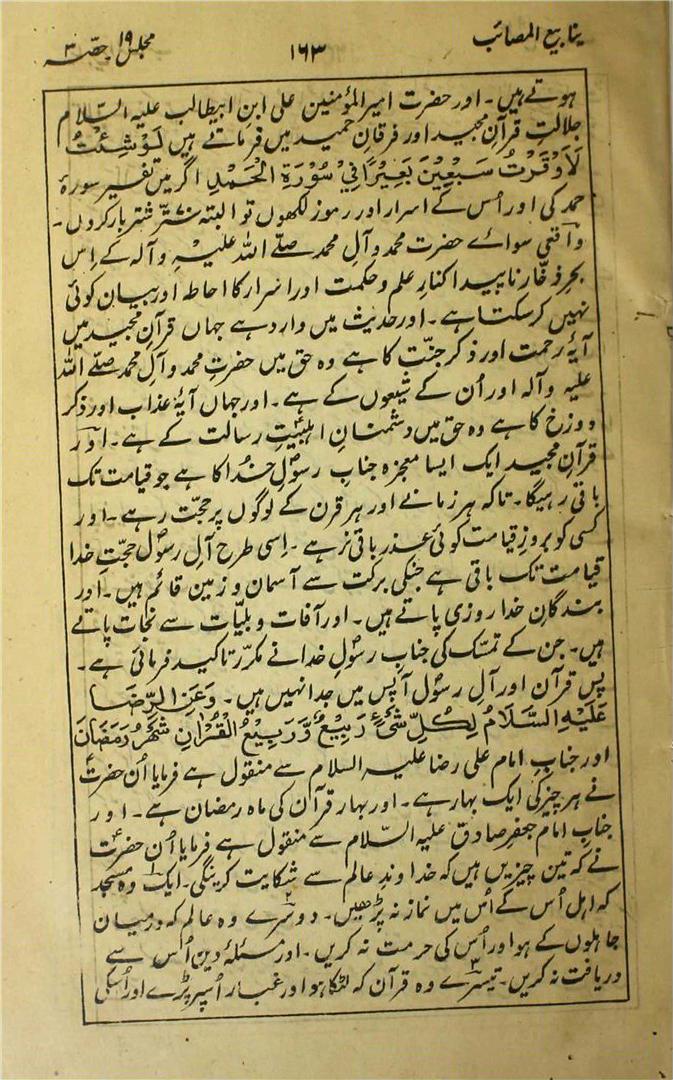 ینابیع المصائب
۱۶۳
مجلس ۱۹ حصّہ ۳
ہوتے ہیں۔ اور حضرت امیر المؤمنین علی ابن ابیطالب علیہ السّلام
جلالتِ قرآنِ مجید اور فرقانِ حمید میں فرماتے ہیں لَوْ شِئْتُ
لَاَوْقَرْتُ سَبْعِیْنَ بَعِیْرًا فِیْ سُوْرَةِ الْحَمْدِ اگر میں تفسیر سورۂ
حمد کی اور اُس کے اسرار اور رموز لکھوں تو البتہ ۷۰ ستّر شتر بار کروں۔
واقعی سوائے حضرت محمد و آلِ محمد صلّے اللہ علیہ و آلہ کے اِس
بحرِ ذخّار ناپیدا کنارِ علم و حکمت اور اسرار کا احاطہ اور بیان کوئی
نہیں کر سکتا ہے۔ اور حدیث میں وارد ہے جہاں قرآنِ مجید میں
آیۂ رحمت اور ذکر جنّت کا ہے وہ حق میں حضرتِ محمد و آلِ محمد صلّے اللہ
علیہ و آلہ اور اُن کے شیعوں کے ہے۔ اور جہاں آیۂ عذاب اور ذکر
دوزخ کا ہے وہ حق میں دشمنانِ اہلبیتِ رسالت کے ہے۔ اور
قرآنِ مجید ایک ایسا معجزہ جنابِ رسولِ خدا کا ہے جو قیامت تک
باقی رہیگا۔ تاکہ ہر زمانے اور ہر قرن کے لوگوں پر حجّت رہے۔ اور
کسی کو بروزِ قیامت کوئی عذر باقی نرہے۔ اِسی طرح آلِ رسول حجّتِ خدا
قیامت تک باقی ہے جنکی برکت سے آسمان و زمین قائم ہیں۔ اور
بندگانِ خدا روزی پاتے ہیں۔ اور آفات و بلیّات سے نجات پاتے
ہیں۔ جن کے تمسّک کی جنابِ رسولِ خدا نے مکرّر تاکید فرمائی ہے۔
پس قرآن اور آلِ رسول آپس میں جدا نہیں ہیں۔ وَعَنِ الرِّضَا
عَلَیْہِ السَّلَامُ لِکُلِّ شَیْءٍ رَبِیْعٌ وَّرَبِیْعُ الْقُرْاٰنِ شَھْرُ رَمَضَانَ
اور جنابِ امام علی رضا علیہ السلام سے منقول ہے فرمایا اُن حضرتؑ
نے ہر چیز کی ایک بہار ہے۔ اور بہار قرآن کی ماہ رمضان ہے۔ اور
جنابِ امام جعفرِ صادق علیہ السّلام سے منقول ہے فرمایا اُن حضرتؑ
نے کہ تین چیزیں ہیں کہ خداوندِ عالم سے شکایت کرینگی۔ ایک ۱ وہ مسجد
کہ اہل اُس کے اُس میں نماز نہ پڑھیں۔ دوسرے ۲ وہ عالم کہ درمیان
جاہلوں کے ہو اور اُس کی حرمت نہ کریں۔ اور مسئلۂ دین اُس سے
دریافت نہ کریں۔ تیسرے ۳ وہ قرآن کہ لٹکا ہو اور غبار اُسپر پڑے اور اُسکی